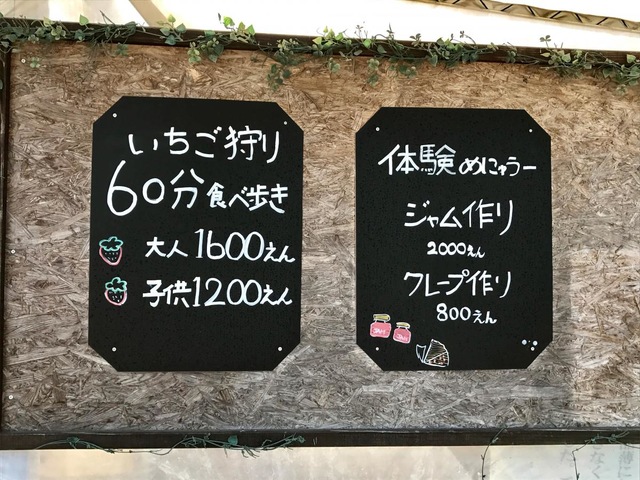 いちご狩り
60分食べ歩き
大人1600えん
子供1200えん
体験めにゅうー
ジャム作り
2000えん
クレープ作り
800えん
JAM
JAM